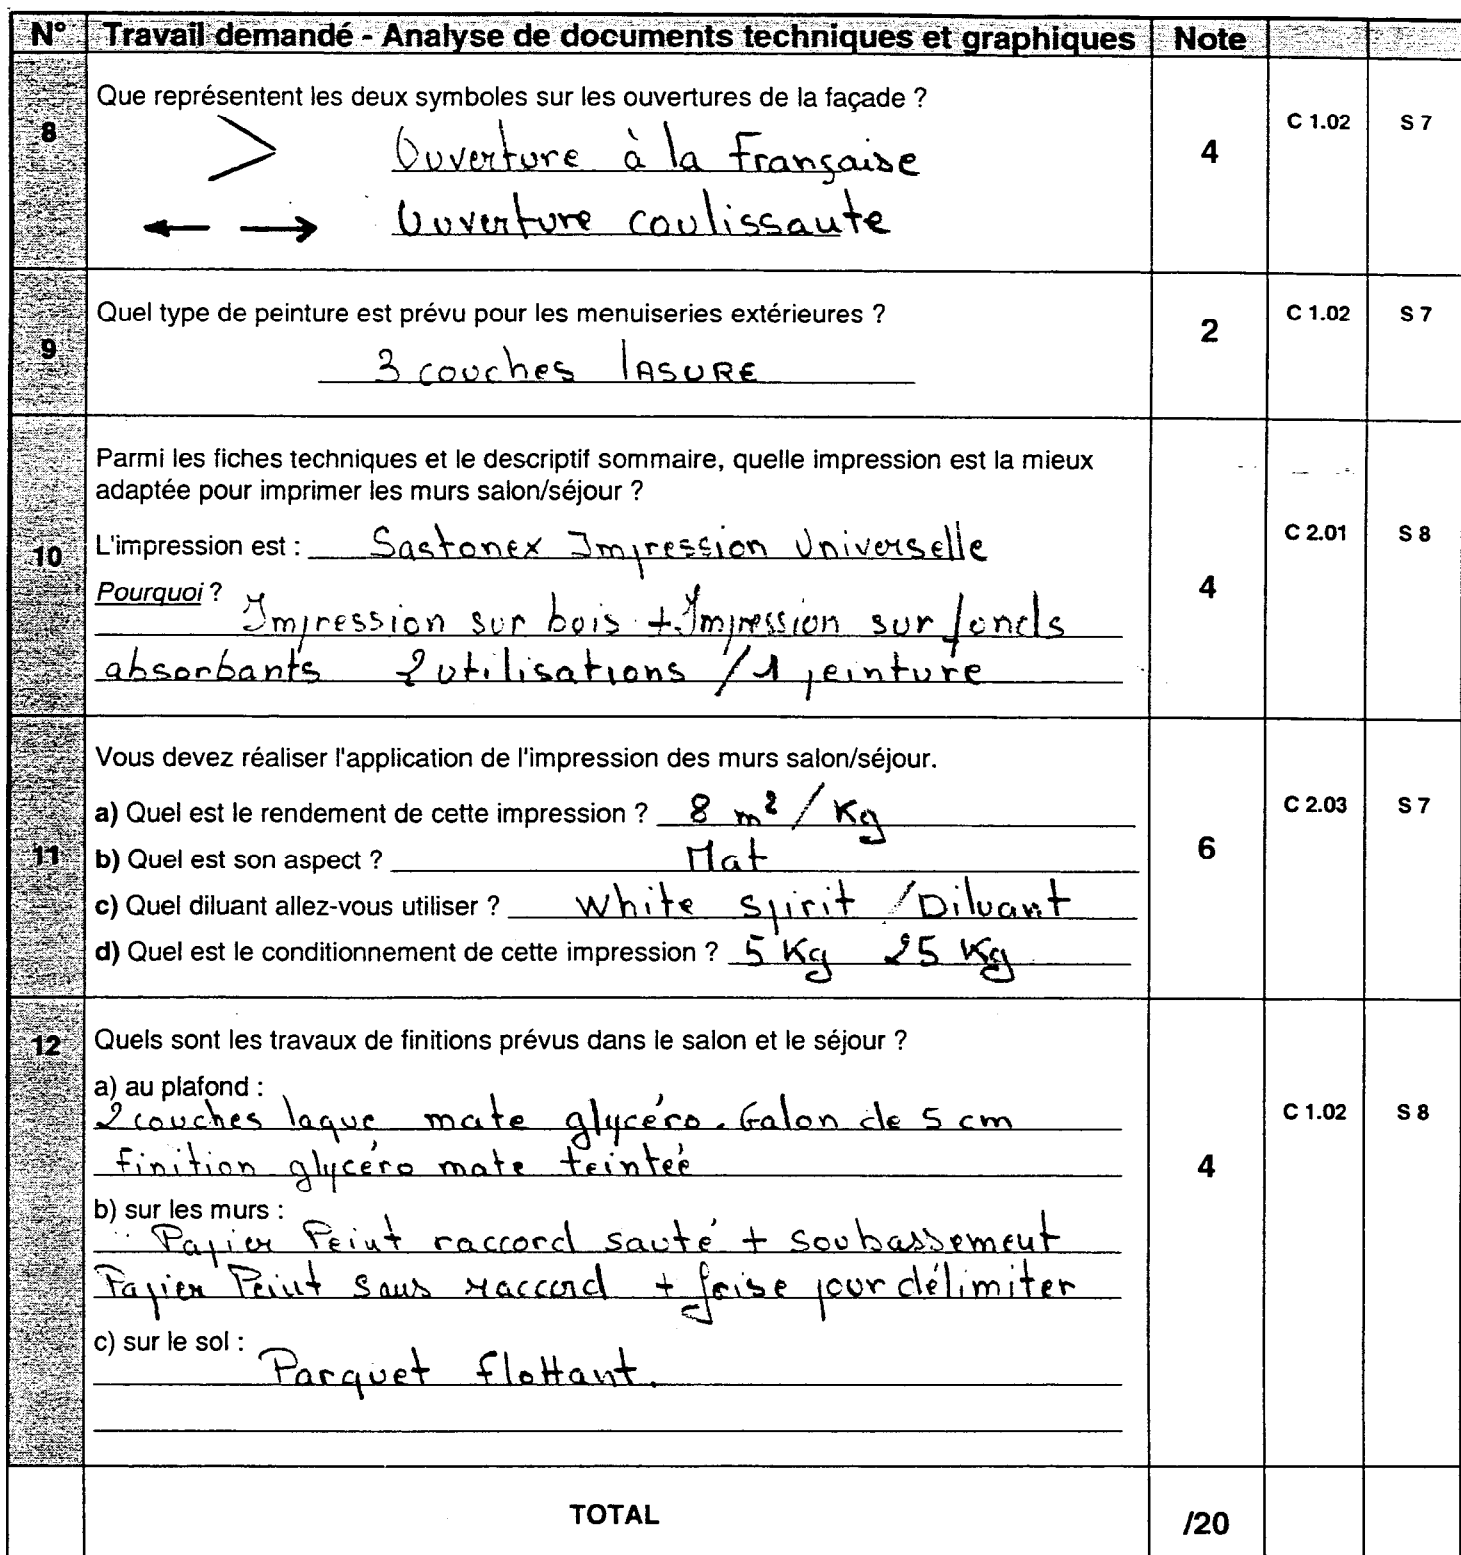 N° Travail demandé - Analyse de documents techniques et graphiques Note
8 Que représentent les deux symboles sur les ouvertures de la façade ?
Ouverture à la Française
4 C 1.02 S 7
Ouverture coulissante
Quel type de peinture est prévu pour les menuiseries extérieures ?
9 2 C 1.02 S 7
3 couches lASURE
Parmi les fiches techniques et le descriptif sommaire, quelle impression est la mieux
adaptée pour imprimer les murs salon/séjour ?
10 L'impression est : Sastonex Impression Universelle
4 C 2.01 S 8
Pourquoi ? Impression sur bois + Impression sur fonds
absorbants 2 utilisations / 1 peinture
Vous devez réaliser l'application de l'impression des murs salon/séjour.
a) Quel est le rendement de cette impression ? 8 m² / Kg
11 b) Quel est son aspect ? Mat
6 C 2.03 S 7
c) Quel diluant allez-vous utiliser ? White Spirit / Diluant
d) Quel est le conditionnement de cette impression ? 5 Kg 25 Kg
12 Quels sont les travaux de finitions prévus dans le salon et le séjour ?
a) au plafond :
2 couches laque mate glycéro. Galon de 5 cm
finition glycéro mate teintée
4 C 1.02 S 8
b) sur les murs :
Papier Peint raccord sauté + soubassement
Papier Peint sans raccord + frise pour délimiter
c) sur le sol :
Parquet flottant.
TOTAL /20